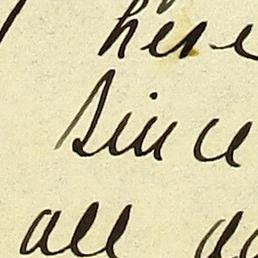 here
Since
all